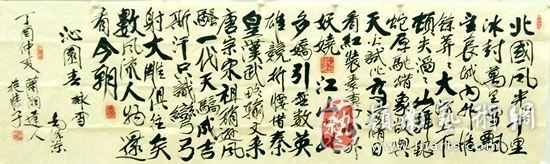 北國風光千里
冰封萬里雪飄
望長城內外惟
餘莽莽大河上下
頓失滔滔山舞銀
蛇原馳蠟象欲與
天公試比高須晴日
看紅裝素裹分外
妖嬈江山如此
多嬌引無數英
雄競折腰惜秦
皇漢武略輸文采
唐宗宋祖稍遜風
騷一代天驕成吉
思汗只識彎弓
射大雕俱往矣
數風流人物還
看今朝
沁園春 詠雪
丁酉中夏